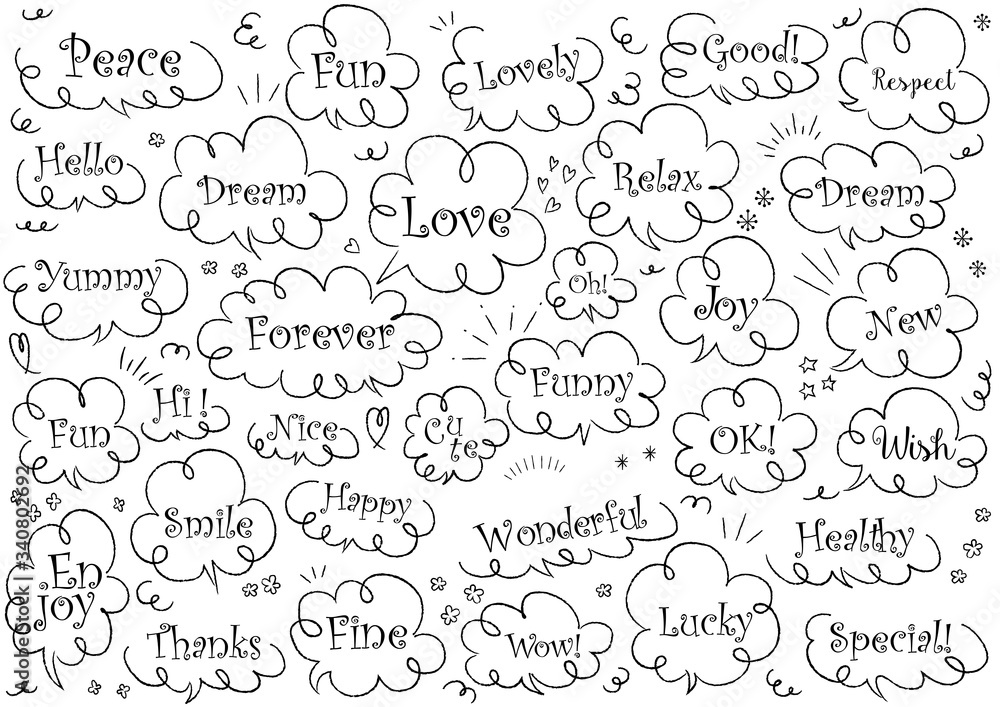 Peace
Fun
Lovely
Good!
Respect
Hello
Dream
Love
Relax
Dream
Yummy
Forever
Oh!
Joy
New
Fun
Hi!
Nice
Cu
te
Funny
OK!
Wish
Smile
Happy
Wonderful
Healthy
En
Joy
Thanks
Fine
Wow!
Lucky
Special!
Adobe Stock | 340802692